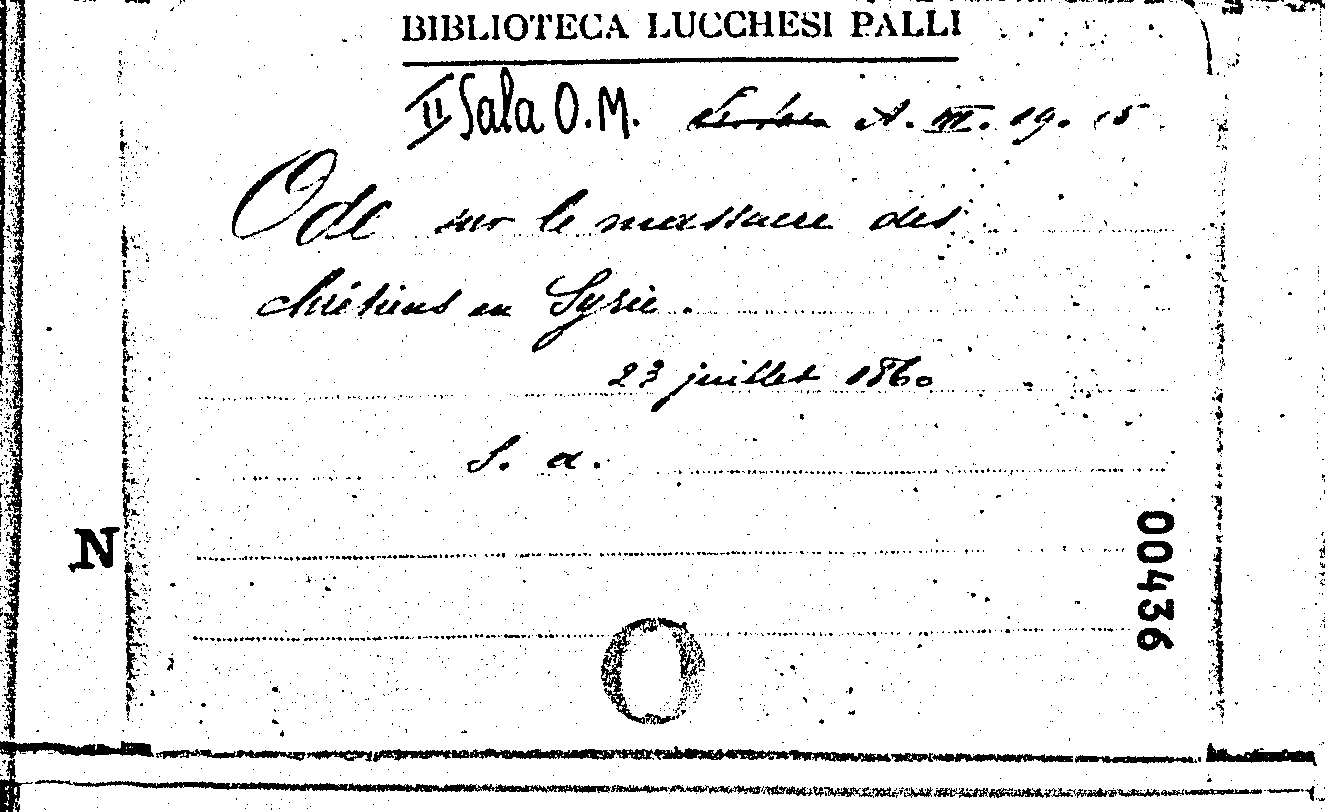 BIBLIOTECA LUCCHESI PALLI
II Sala O.M. A. III. 19. 15
Ode sur le massacre des
chrétiens en Syrie.
23 juillet 1860
S. a.
N
00436